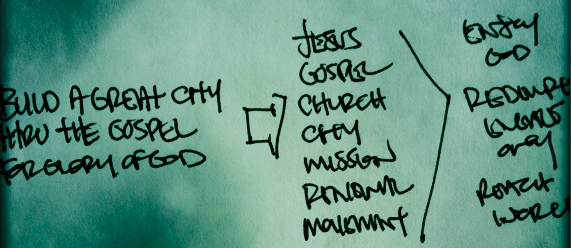 BUILD A GREAT CITY
THRU THE GOSPEL
FOR GLORY OF GOD
JESUS
GOSPEL
CHURCH
CITY
MISSION
RENEWAL
MOVEMENT
ENJOY
GOD
REACH
WORLD